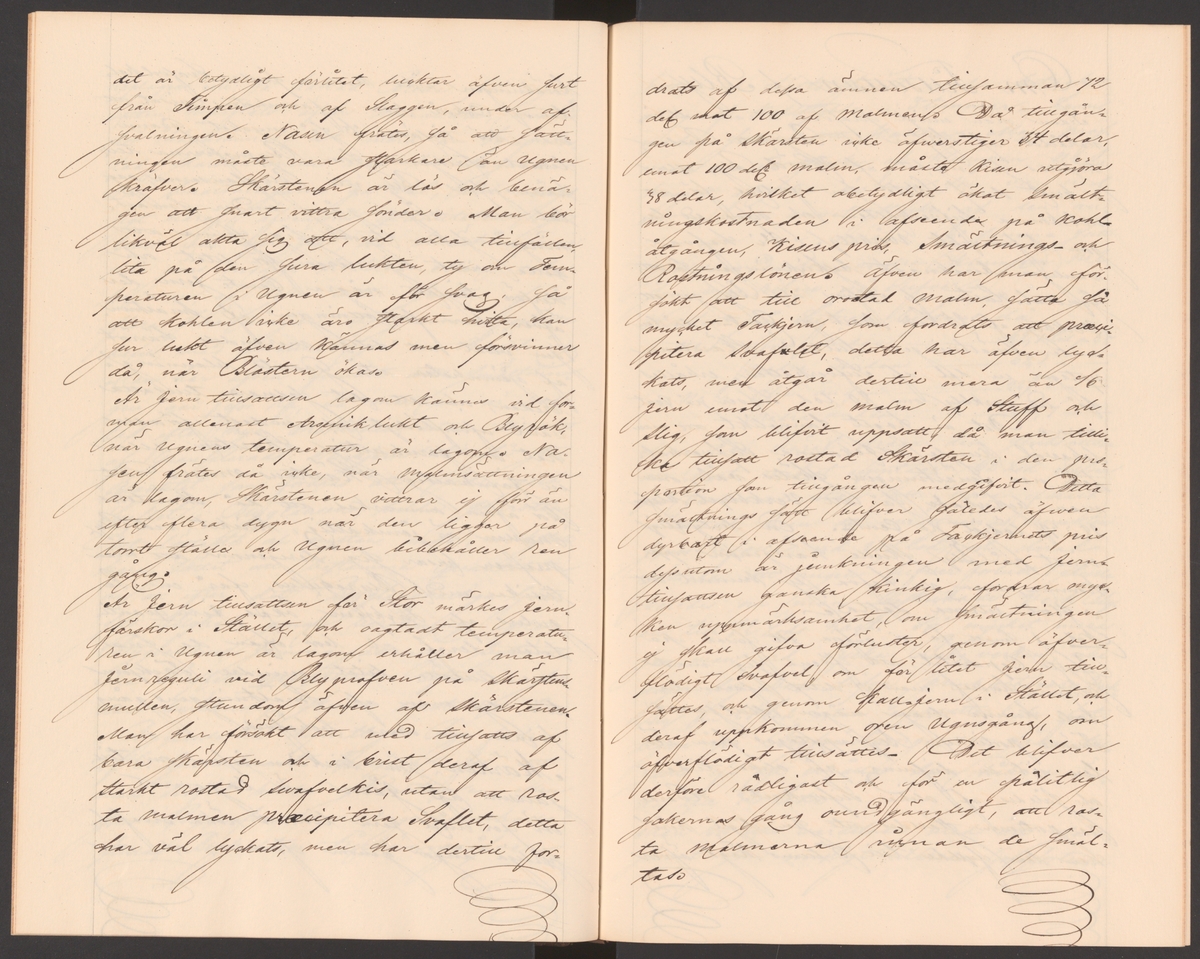 det är betydligt förlåtet, luktar äfven surt
från Timpen och af Slaggen, under af-
svalningen. Nasen frätes, så att sätt-
ningen måste vara starkare än Ugnen
kräfver. Skärstenen är lös och benä-
gen att snart vittra sönder. Man bör
likväl akta sig att, vid alla tillfällen,
lita på den sura lukten, ty om Tem-
peraturen i Ugnen är för svag, så
att kohlen icke äro starkt hitta, kan
sur lukt äfven kännas men försvinner
då, när Blästern ökas.
Är Jern tillsattsen lagom kännes vid for-
man allenast Arseniklukt och Blyrök,
när Ugnens temperatur är lagom. Na-
sen frätes då icke, när malmsättningen
är lagom, Skärstenen vittrar ej förr än
efter flera dygn när den ligger på
torrt ställe och Ugnen bibehåller ren
gång.
Är Jern tillsattsen för Stor märkes jern-
färskor i Stället, och oagtadt temperatu-
ren i Ugnen är lagom erhåller man
Jernreguli vid Blyprofven på Skärstens-
mullen, stundom äfven af Skärstenen.
Man har försökt att med tillsatts af
bara Skärsten och i brist deraf af
starkt rostad Svafvelkis, utan att ros-
ta malmen præcipitera Svaflet, detta
har väl lyckats, men har dertill for-
drats af dessa ämnen tillsamman 72
del mot 100 af Malmen. Då tillgån-
gen på Skärsten icke äfverstiger 34 delar,
emot 100 del malm, måste Kisen utgjöra
38 delar, hvilket obetydligt ökat Smält-
ningskostnaden i afseende på Kohl-
åtgången, Kisens pris, Smältnings- och
Rostningslönen. Äfven har man för-
sökt att till orostad malm, sätta så
mycket Tackjern, som fordrats att præci-
pitera Svaflet, detta har äfven lyc-
kats, men åtgår dertill mera än 1/6
jern emot den malm af Stuff och
Slig, som blifvit uppsatt då man tilli-
ka tillsatt rostad Skärsten i den pro-
portion som tillgången medgifvit. Detta
smältnings sätt blifver således äfven
dyrbart i afseende på Tackjernets pris
dessutom är jemkningen med Jern-
tillsattsen ganska kinkig, fordrar myc-
ken uppmärksamhet, om Smältningen
ej skall gifva förluster, genom äfver-
flödigt Svafvel, om för litet Jern till-
sättes, och genom stalljern i Stället, och
deraf uppkommen oren Ugnsgång, om
äfverflödigt tillsättes. Det blifver
derföre rådligast och för en pålitlig
sakernas gång oundgängligt, att ros-
ta Malmerna innan de smäl-
tas.